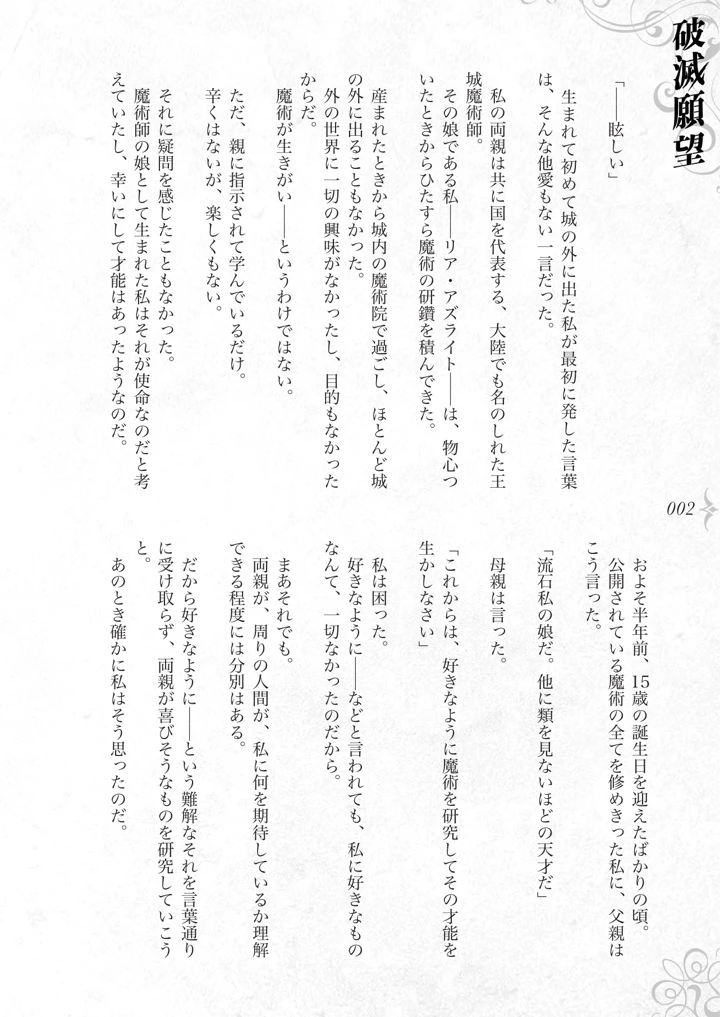 破滅願望
「――眩しい」
生まれて初めて城の外に出た私が最初に発した言葉
は、そんな他愛もない一言だった。
私の両親は共に国を代表する、大陸でも名のしれた王
城魔術師。
その娘である私――リア・アズライト――は、物心つ
いたときからひたすら魔術の研鑽を積んできた。
産まれたときから城内の魔術院で過ごし、ほとんど城
の外に出ることもなかった。
外の世界に一切の興味がなかったし、目的もなかった
からだ。
魔術が生きがい――というわけではない。
ただ、親に指示されて学んでいるだけ。
辛くはないが、楽しくもない。
それに疑問を感じたこともなかった。
魔術師の娘として生まれた私はそれが使命なのだと考
えていたし、幸いにして才能はあったようなのだ。
002
およそ半年前、15歳の誕生日を迎えたばかりの頃。
公開されている魔術の全てを修めきった私に、父親は
こう言った。
「流石私の娘だ。他に類を見ないほどの天才だ」
母親は言った。
「これからは、好きなように魔術を研究してその才能を
生かしなさい」
私は困った。
好きなように――などと言われても、私に好きなもの
なんて、一切なかったのだから。
まあそれでも。
両親が、周りの人間が、私に何を期待しているか理解
できる程度には分別はある。
だから好きなように――という難解なそれを言葉通り
に受け取らず、両親が喜びそうなものを研究していこう
と。
あのとき確かに私はそう思ったのだ。